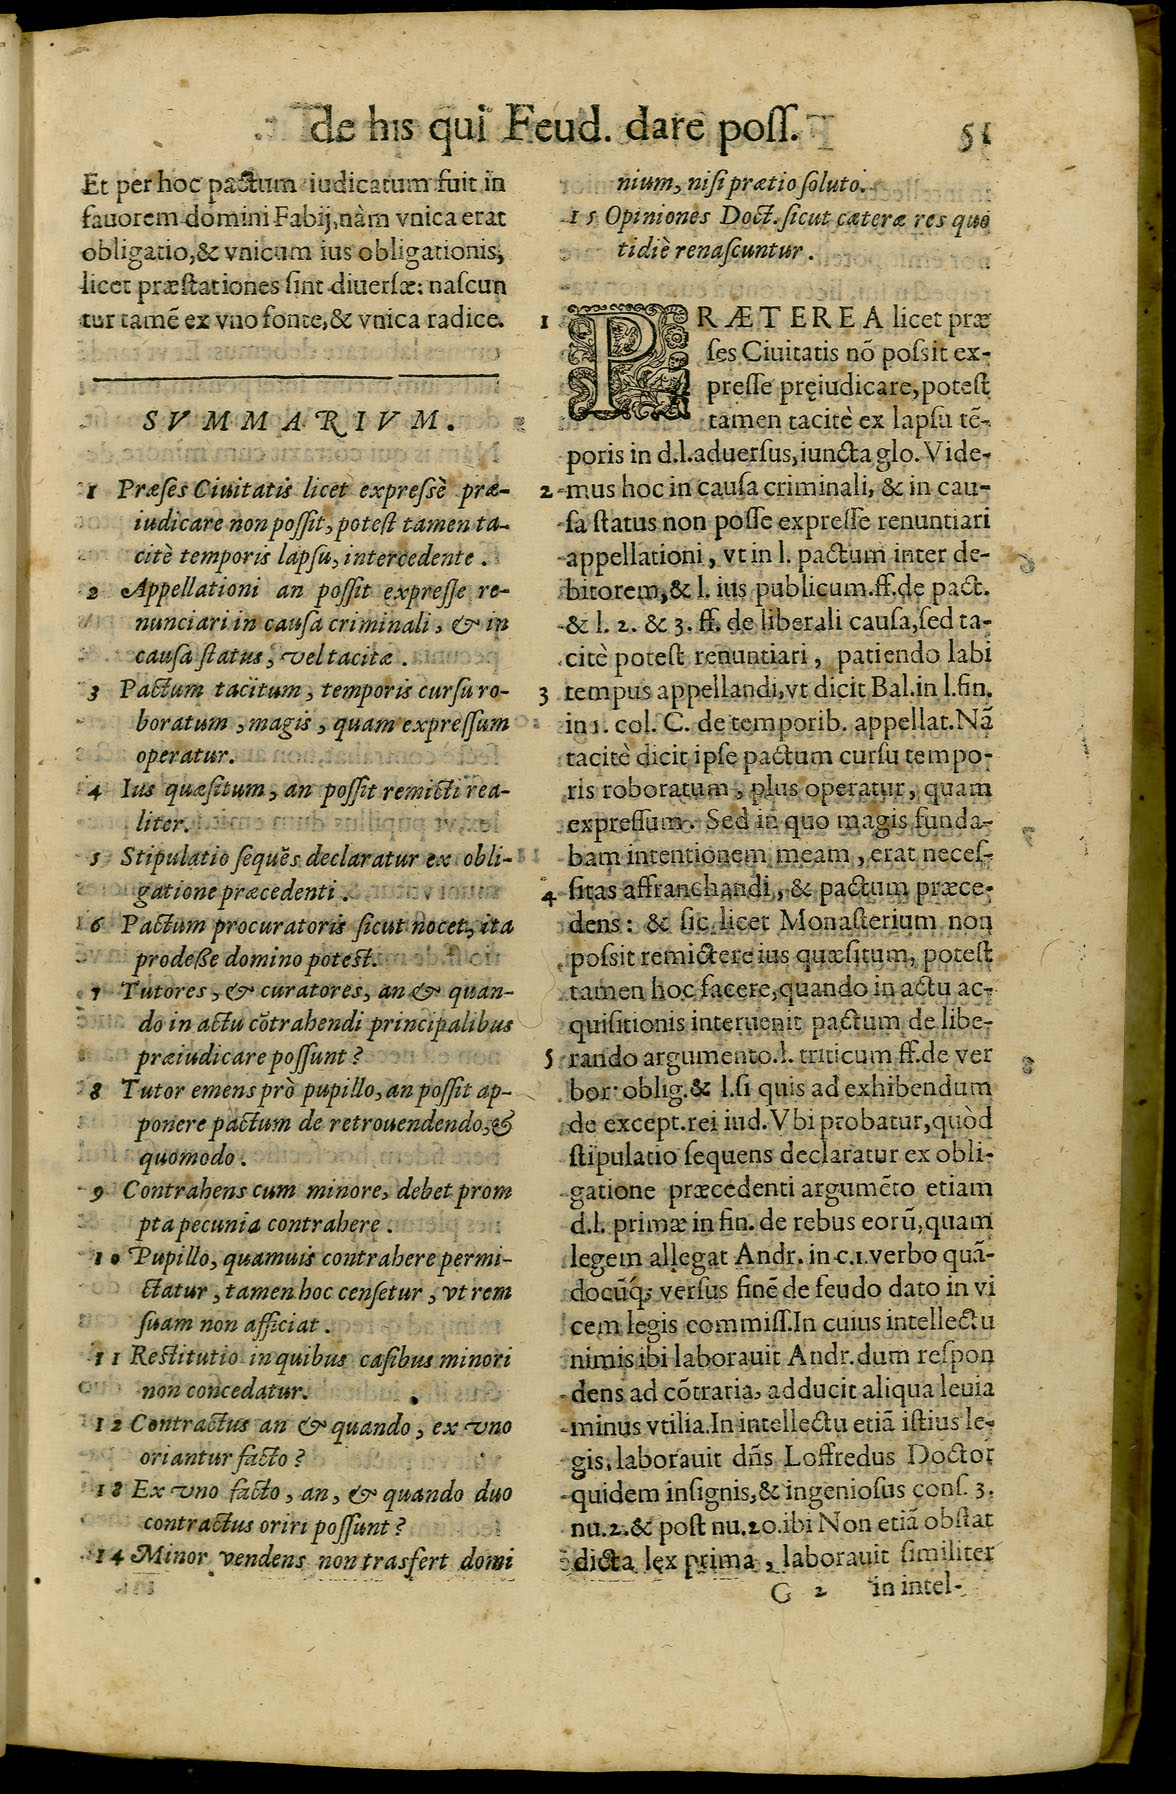 de his qui Feud. dare poss. 51
Et per hoc pactum iudicatum fuit in
fauorem domini Fabij, nàm vnica erat
obligatio, & vnicum ius obligationis,
licet præstationes sint diuersæ: nascun
tur tamē ex vno fonte, & vnica radice.
SVMMARIVM.
1 Præses Ciuitatis licet expressè præ-
iudicare non possit, potest tamen ta-
citè temporis lapsu, intercedente.
2 Appellationi an possit expresse re-
nunciari in causa criminali, & in
causa status, vel tacitæ.
3 Pactum tacitum, temporis cursu ro-
boratum, magis, quam expressum
operatur.
4 Ius quæsitum, an possit remicti rea-
liter.
5 Stipulatio sequēs declaratur ex obli-
gatione præcedenti.
6 Pactum procuratoris sicut nocet, ita
prodesse domino potest.
7 Tutores, & curatores, an & quan-
do in actu cōtrahendi principalibus
præiudicare possunt?
8 Tutor emens prò pupillo, an possit ap-
ponere pactum de retrouendendo, &
quomodo.
9 Contrahens cum minore, debet prom
pta pecunia contrahere.
10 Pupillo, quamuis contrahere permi-
ctatur, tamen hoc censetur, vt rem
suam non afficiat.
11 Restitutio in quibus casibus minori
non concedatur.
12 Contractus an & quando, ex vno
oriantur facto?
18 Ex vno facto, an, & quando duo
contractus oriri possunt?
14 Minor vendens non trasfert domi
nium, nisi prætio soluto.
15 Opiniones Doct. sicut cæteræ res quo
tidiè renascuntur.
1 PRÆTEREA licet præ
ses Ciuitatis nō possit ex-
presse pręiudicare, potest
tamen tacitè ex lapsu tē-
poris in d.l. aduersus, iuncta glo. Vide-
2 mus hoc in causa criminali, & in cau-
sa status non posse expresse renuntiari
appellationi, vt in l. pactum inter de-
bitorem, & l. ius publicum. ff. de pact.
& l. 2. & 3. ff. de liberali causa, sed ta-
citè potest renuntiari, patiendo labi
3 tempus appellandi, vt dicit Bal. in l. fin.
in 1. col. C. de temporib. appellat. Nā
tacitè dicit ipse pactum cursu tempo-
ris roboratum, plus operatur, quam
expressum. Sed in quo magis funda-
bam intentionem meam, erat neces-
4 sitas affranchandi, & pactum præce-
dens: & sic licet Monasterium non
possit remictere ius quæsitum, potest
tamen hoc facere, quando in actu ac-
quisitionis interuenit pactum de libe-
5 rando argumento. l. triticum ff. de ver
bor. oblig. & l. si quis ad exhibendum
de except. rei iud. Vbi probatur, quòd
stipulatio sequens declaratur ex obli-
gatione præcedenti argumēto etiam
d.l. primæ in fin. de rebus eorū, quam
legem allegat Andr. in c. 1. verbo quā-
docūq; versus finē de feudo dato in vi
cem legis commiss. In cuius intellectu
nimis ibi laborauit Andr. dum respon
dens ad cōtraria, adducit aliqua leuia
minus vtilia. In intellectu etiā istius le-
gis, laborauit dn̄s Loffredus Doctor
quidem insignis, & ingeniosus cons. 3.
nu. 2. & post nu. 20. ibi Non etiā obstat
dicta lęx prima, laborauit similiter
G 2 in intel-